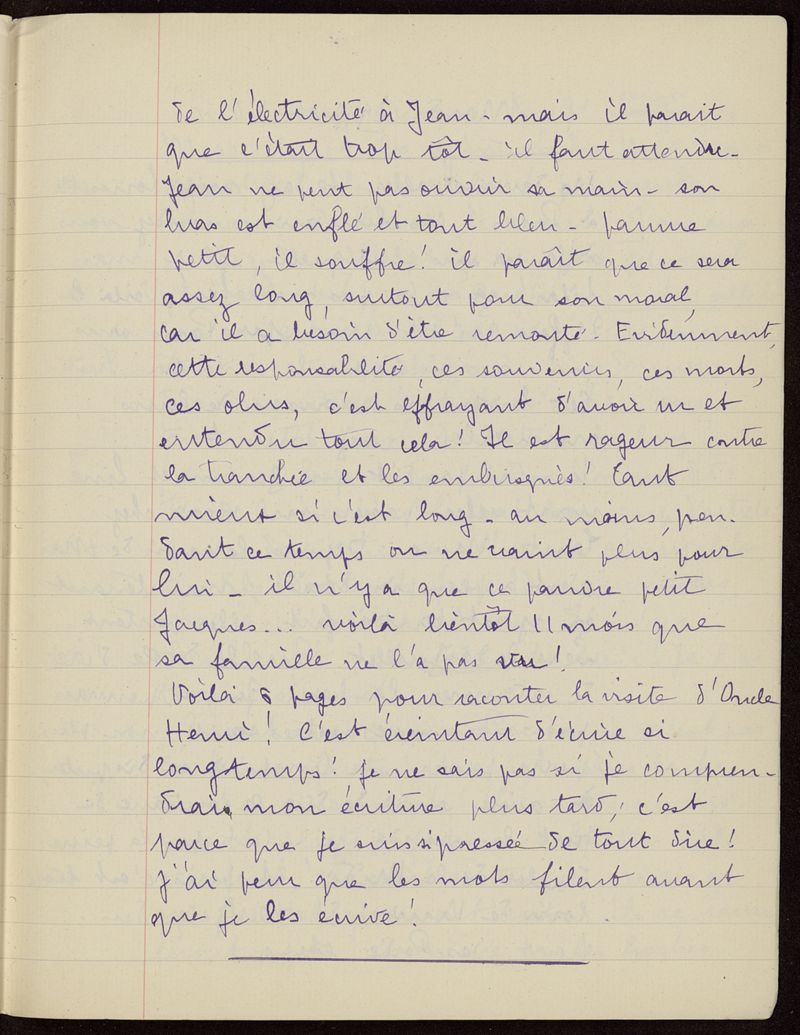 de l'électricité à Jean - mais il parait
que c'était trop tôt - il faut attendre -
Jean ne peut pas ouvrir sa main - son
bras est enflé et tout bleu - pauvre
petit, il souffre! il paraît que ce sera
assez long, surtout pour son moral,
car il a besoin d'être remonté. Evidemment,
cette responsabilité, ces souvenirs, ces morts,
ces obus, c'est effrayant d'avoir vu et
entendu tout cela! Il est rageur contre
la tranchée et les embusqués! Tant
mieux si c'est long - au moins, pen-
dant ce temps on ne craint plus pour
lui - il n'y a que ce pauvre petit
Jacques... voilà bientôt 11 mois que
sa famille ne l'a pas vu!
Voilà 8 pages pour raconter la visite d'Oncle
Henri! C'est éreintant d'écrire si
longtemps! je ne sais pas si je compren-
drai mon écriture plus tard, c'est
parce que je suis si pressée de tout dire!
j'ai peur que les mots filent avant
que je les écrive!